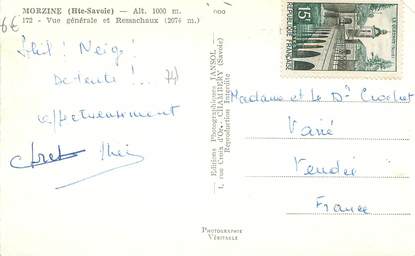 MORZINE (Hte-Savoie) — Alt. 1000 m.
172 - Vue générale et Ressachaux (2674 m.)
6€
Neige
Detente ! ..
affectueusement
— Editions Photographiques JANSOL —
1, rue Croix d'Or, CHAMBERY (Savoie)
Reproduction Interdite
15F
REPUBLIQUE FRANÇAISE
Madame et le Dr Crochet
Vairé
Vendée
France
PHOTOGRAPHIE
VÉRITABLE